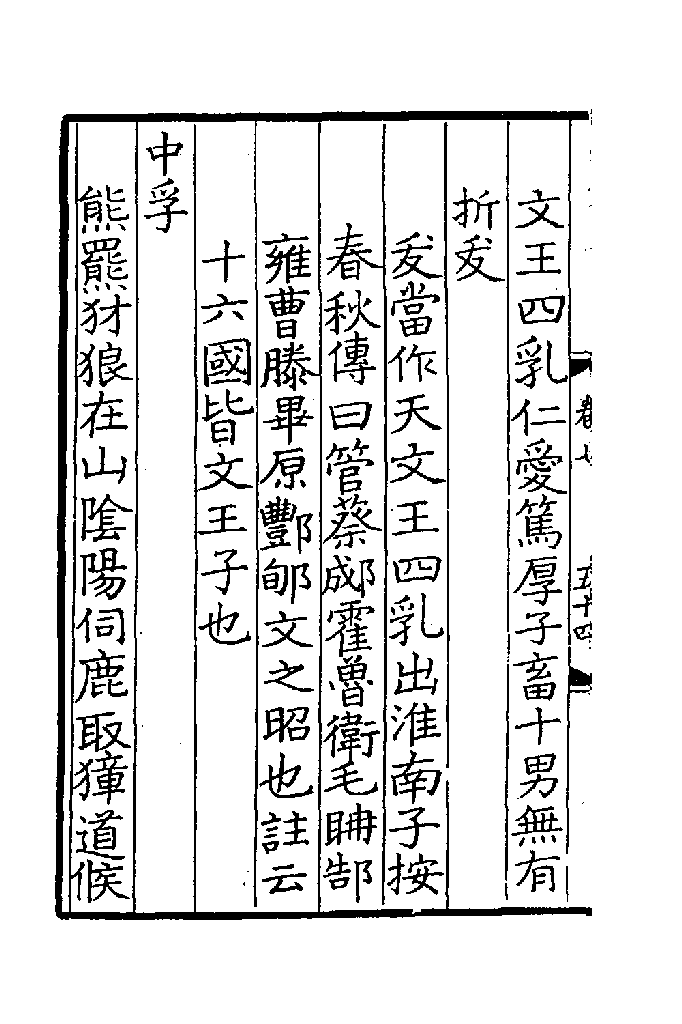 卷七 五十四
文王四乳仁愛篤厚子畜十男無有
折叐
叐當作天文王四乳出淮南子按
春秋傳曰管蔡郕霍魯衛毛聃郜
雍曹滕畢原酆郇文之昭也註云
十六國皆文王子也
中孚
熊羆犲狼在山隂陽伺鹿取獐道候